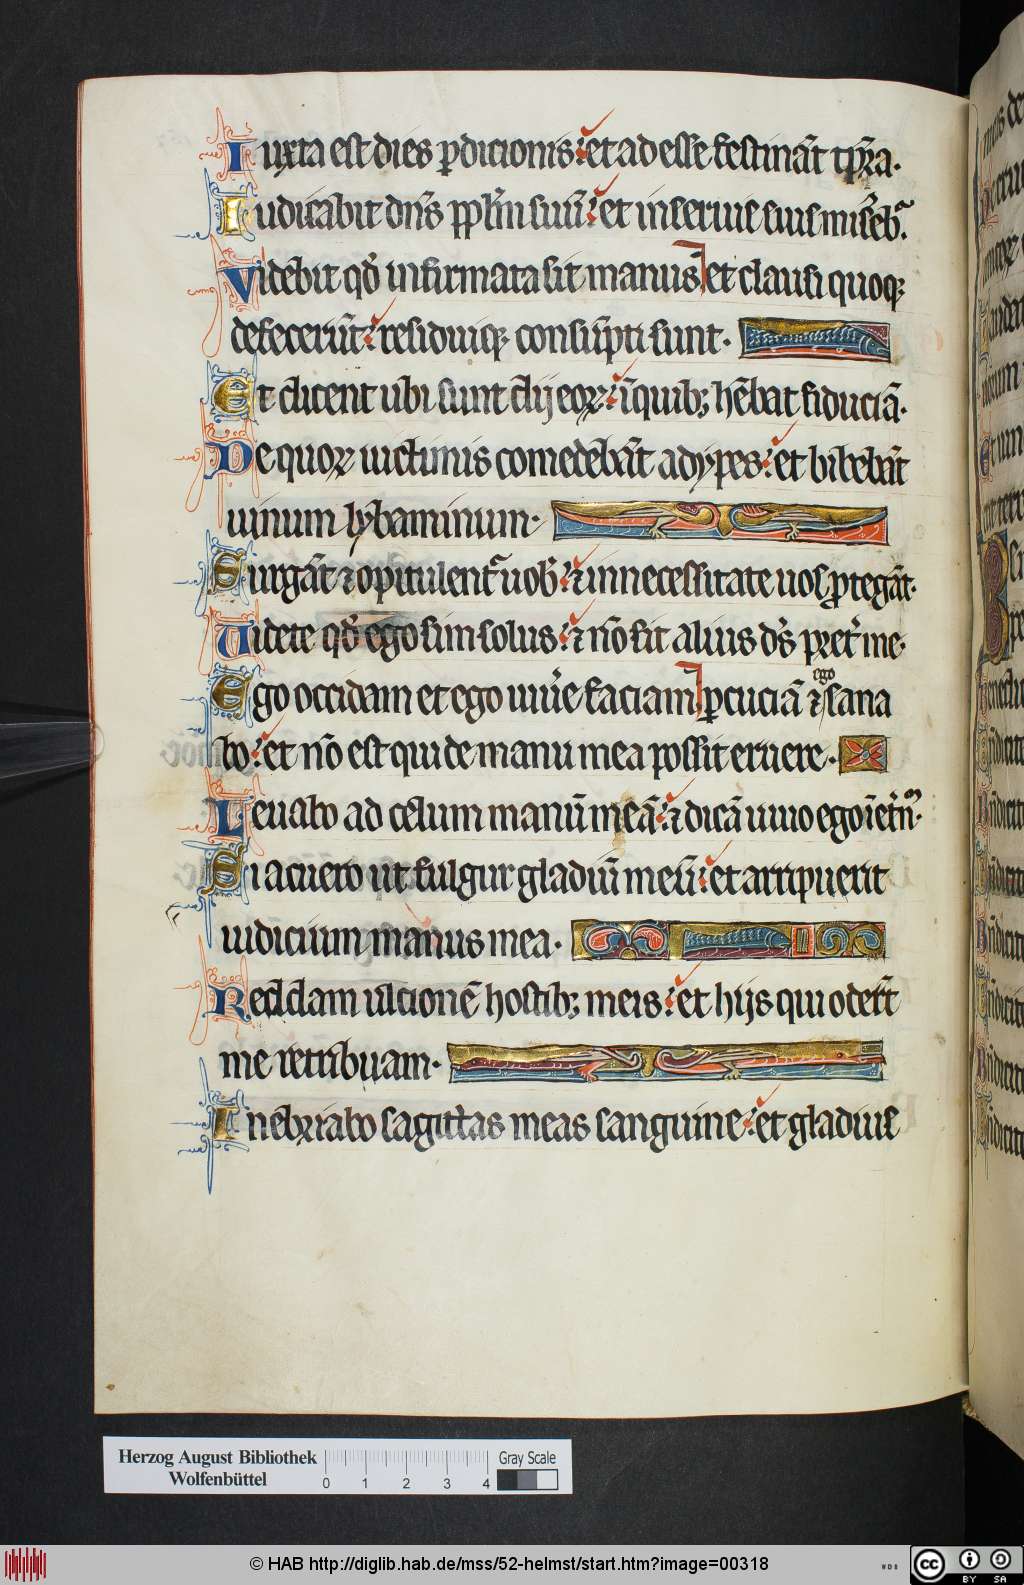 Iuxta est dies ꝑdicionis et ad esse festināt tp̄ra.
Iudicabit dn̄s pp̄lm̄ suū et in seruis suis mis̄eb̄.
Videbit qd̄ infirmata sit manus et clausi quoqꝫ
defecerūt residuiqꝫ consūpti sunt.
Et dicent ubi sunt dij eoꝝ ī quibꝫ hēbat fiduciā.
De quoꝝ uictimis comedebāt adypes et bibebāt
uinum lybaminum.
Surgāt ⁊ opitulent̄ uob̄ ⁊ in necessitate uos ꝓtegāt.
Videte qd̄ ego sim solus ⁊ nō sit alius ds̄ p̄ret̄ me.
Ego occidam et ego uiu̅e faciam ꝑcuciā ⁊ ego sana
bo et nō est qui de manu mea possit eruere.
Leuabo ad celum manū meā ⁊ dicā uiuo ego ī et̄nm̄.
Si acuero ut fulgur gladiū meū et arripuerit
iudicium manus mea.
Reddam ulcionē hostibꝫ meis et hijs qui oder̄t
me retribuam.
Inebriabo sagittas meas sanguine et gladius
Herzog August Bibliothek
Wolfenbüttel
0 1 2 3 4
Gray Scale
© HAB http://diglib.hab.de/mss/52-helmst/start.htm?image=00318
WDB
cc BY SA